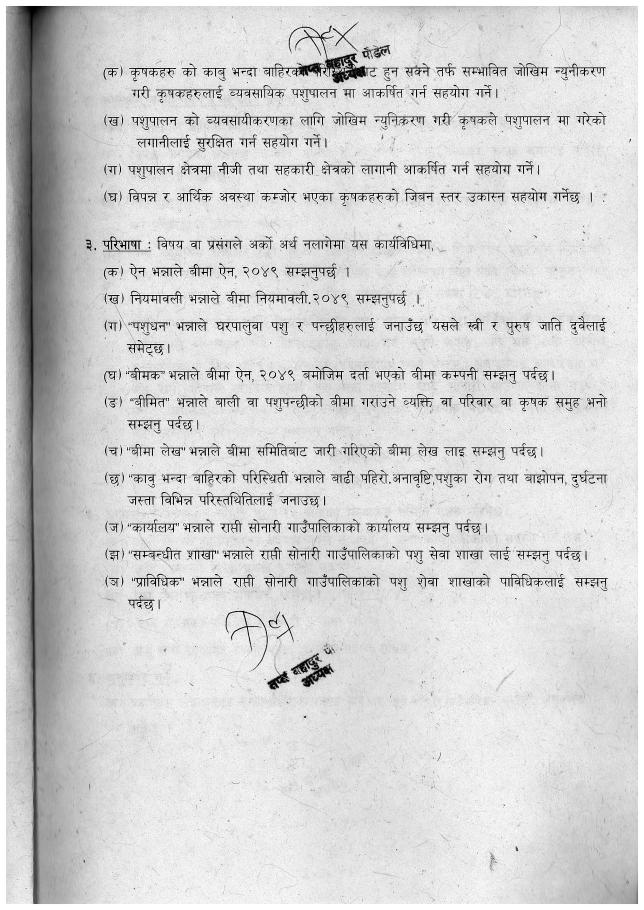 तप्त बहादुर पौडेल
अध्यक्ष
(क) कृषकहरु को काबु भन्दा बाहिरको हुन सक्ने तर्फ सम्भावित जोखिम न्युनीकरण
गरी कृषकहरुलाई व्यवसायिक पशुपालन मा आकर्षित गर्न सहयोग गर्ने।
(ख) पशुपालन को व्यवसायीकरणका लागि जोखिम न्युनिकरण गरी कृषकले पशुपालन मा गरेको
लगानीलाई सुरक्षित गर्न सहयोग गर्ने।
(ग) पशुपालन क्षेत्रमा नीजी तथा सहकारी क्षेत्रको लागानी आकर्षित गर्न सहयोग गर्ने।
(घ) विपन्न र आर्थिक अवस्था कम्जोर भएका कृषकहरुको जिबन स्तर उकास्न सहयोग गर्नेछ ।
३. परिभाषा : विषय वा प्रसंगले अर्को अर्थ नलागेमा यस कार्यविधिमा,
(क) ऐन भन्नाले बीमा ऐन, २०४९ सम्झनुपर्छ ।
(ख) नियमावली भन्नाले बीमा नियमावली.२०४९ सम्झनुपर्छ ।
(ग) "पशुधन" भन्नाले घरपालुवा पशु र पन्छीहरुलाई जनाउँछ यसले स्त्री र पुरुष जाति दुवैलाई
समेट्छ।
(घ) "बीमक" भन्नाले बीमा ऐन, २०४९ बमोजिम दर्ता भएको बीमा कम्पनी सम्झनु पर्दछ।
(ङ) "बीमित" भन्नाले बाली वा पशुपन्छीको बीमा गराउने व्यक्ति वा परिवार वा कृषक समुह भनी
सम्झनु पर्दछ।
(च) "बीमा लेख" भन्नाले बीमा समितिबाट जारी गरिएको बीमा लेख लाइ सम्झनु पर्दछ।
(छ) "काबु भन्दा बाहिरको परिस्थिती भन्नाले बाढी पहिरो.अनावृष्टि,पशुका रोग तथा बाझोपन, दुर्घटना
जस्ता विभिन्न परिस्तथितिलाई जनाउछ।
(ज) "कार्यालय" भन्नाले राप्ती सोनारी गाउँपालिकाको कार्यालय सम्झनु पर्दछ।
(झ) "सम्बन्धीत शाखा" भन्नाले राप्ती सोनारी गाउँपालिकाको पशु सेवा शाखा लाई सम्झनु पर्दछ।
(ञ) "प्राविधिक" भन्नाले राप्ती सोनारी गाउँपालिकाको पशु शेवा शाखाको पाविधिकलाई सम्झनु
पर्दछ।
बहादुर पौ
अध्यक्ष